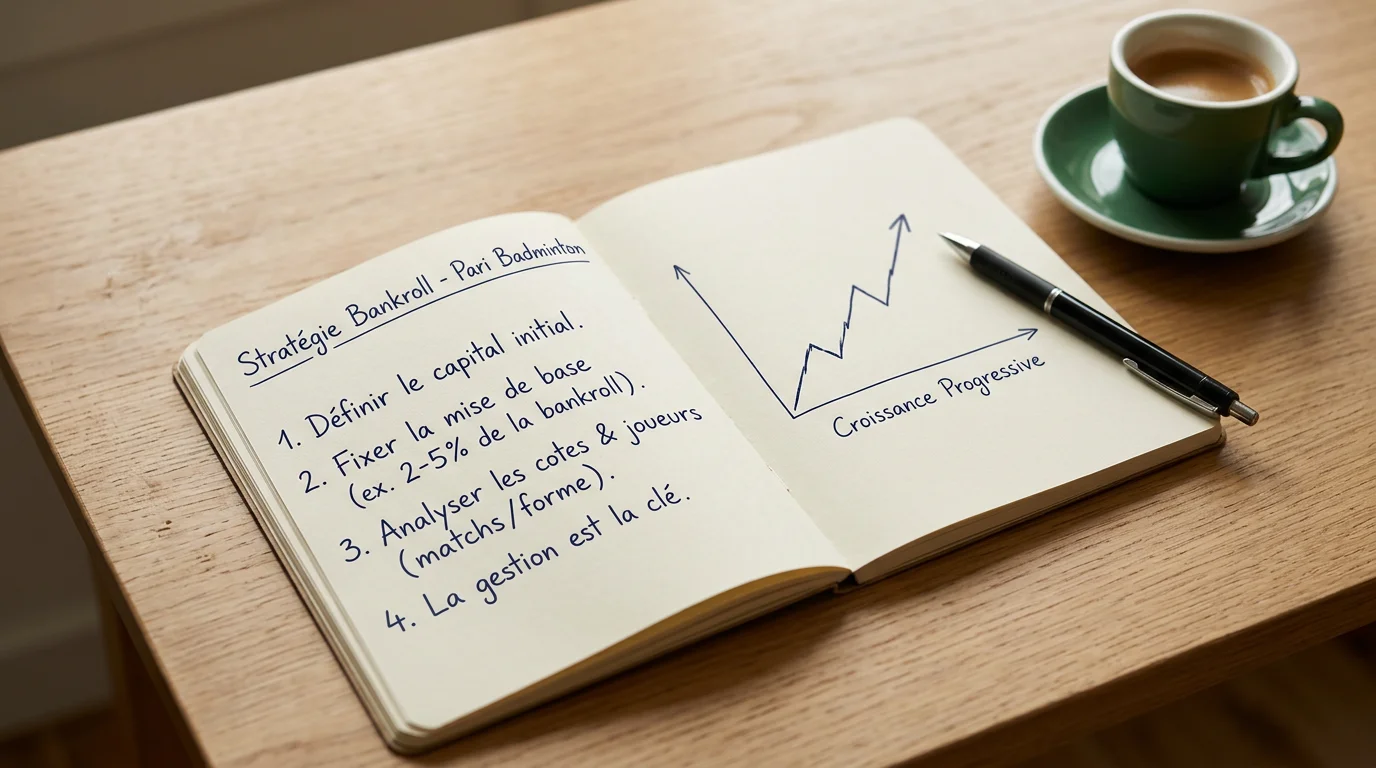 Stratégie Bankroll - Pari Badminton
1. Définir le capital initial.
2. Fixer la mise de base
(ex. 2-5% de la bankroll).
3. Analyser les cotes & joueurs
(matchs/forme).
4. La gestion est la clé.
Croissance Progressive